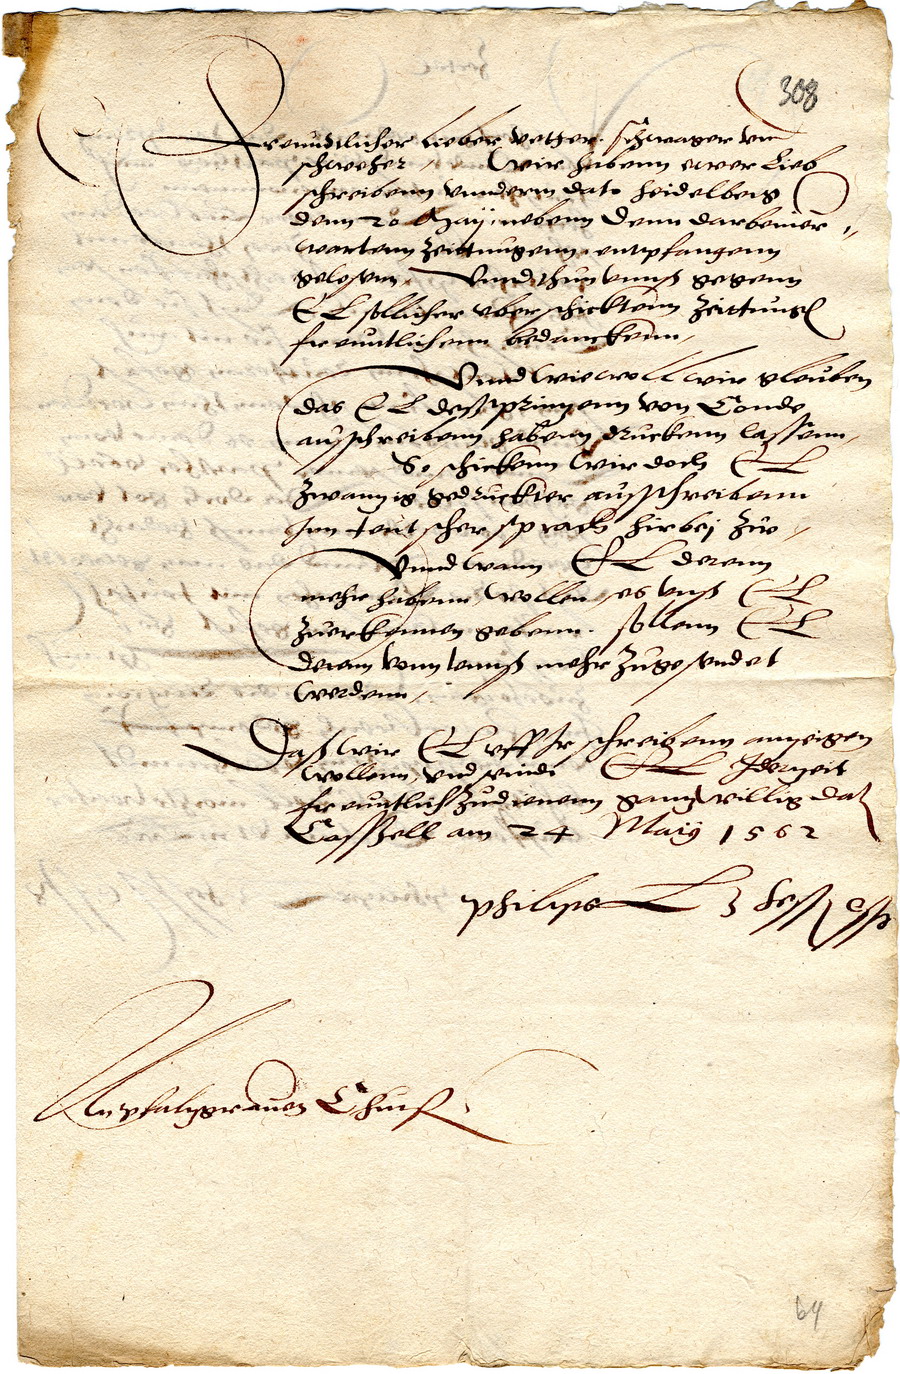 308
Freundtlicher lieber vetter schwager vn
schweher Wir habenn ewer Lieb
schreibenn vnnderm dato Heidelberg
denn 20 Maij nebenn denn darbeiuer
wartenn Zeittungenn entpfangenn
gelesenn, Vnnd thun vnnß gegenn
EL sollicher vberschicktenn Zeittung
freuntlichenn bedanckenn,
Vnnd wiewoll wir glauben
das EL deß printzenn von Conde
außschreibenn habenn druckenn lassenn,
So schickenn wir doch EL
Zwanzig gedruckter außschreibenn
Inn teutscher sprach hirbej Zu,
Vnnd wann EL derenn
mehr habenn wollen, es vnß EL
Zuerkennen gebenn. sollenn EL
deren vonn vnnß mehr Zugesendet
werdenn,
Daß wir EL vff Ir schreibenn anzeigen
wollenn, vnd seindt EL Iderzeit
freuntlich Zudienenn gantz willig dat
Casßell am 24 Maij 1562
philips L Z Hessen
An pfaltzgrauen Churf
64